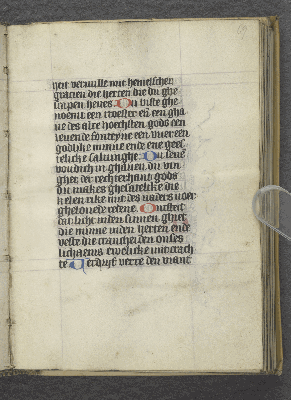 heit veruulle mit hemelscher
gracien die herten die du ghe
scapen heues Du biste ghe
noemt een troester en een gha
ue des alre hoechsten gods een
leuende fonteyne een vuer een
godlike minne ende ene gees
telicke saluinghe Du seue
voudich in ghauen du vin
gher der rechterhant gods
du makes ghesprakelike die
kelen rike mit des vaders woer
ghelouede redene Ontsteect
dat licht inden sinnen ghiet
die minne inden herten ende
veste die crancheiden onses
lichaems ewelicke mit crach
te Verdrijf verre den viant